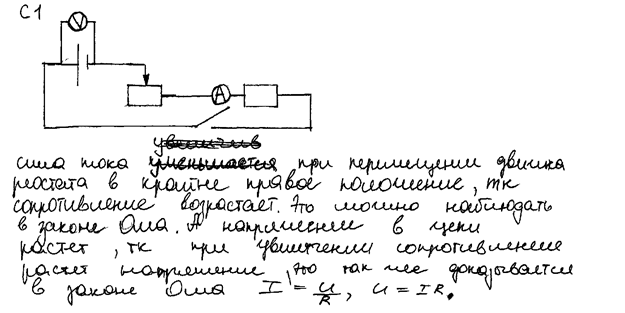 С1
V
A
увеличив
сила тока уменьшается при перемещении движка
реостата в крайне правое положение, тк
сопротивление возрастает. Это можно наблюдать
в законе Ома. А напряжение в цепи
растет, тк при увеличении сопротивления
растет напряжение, это так же доказывается
в законе Ома I = U/R, U = IR.